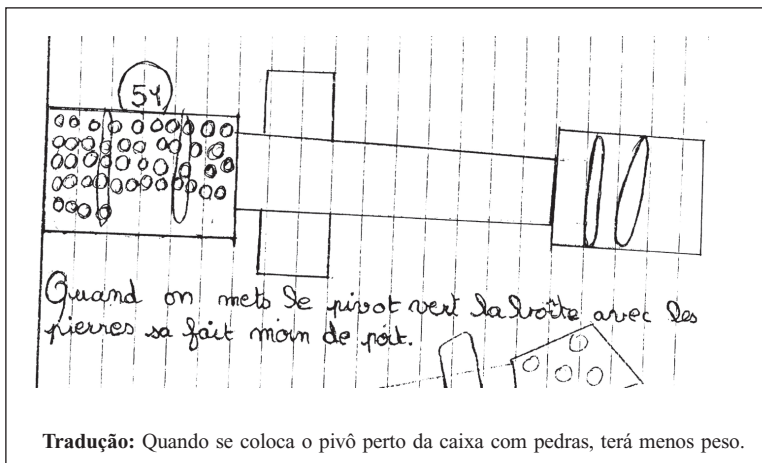 54
Quand on mets le pivot vert la boîte avec les
pierres sa fait moin de poit.
Tradução: Quando se coloca o pivô perto da caixa com pedras, terá menos peso.